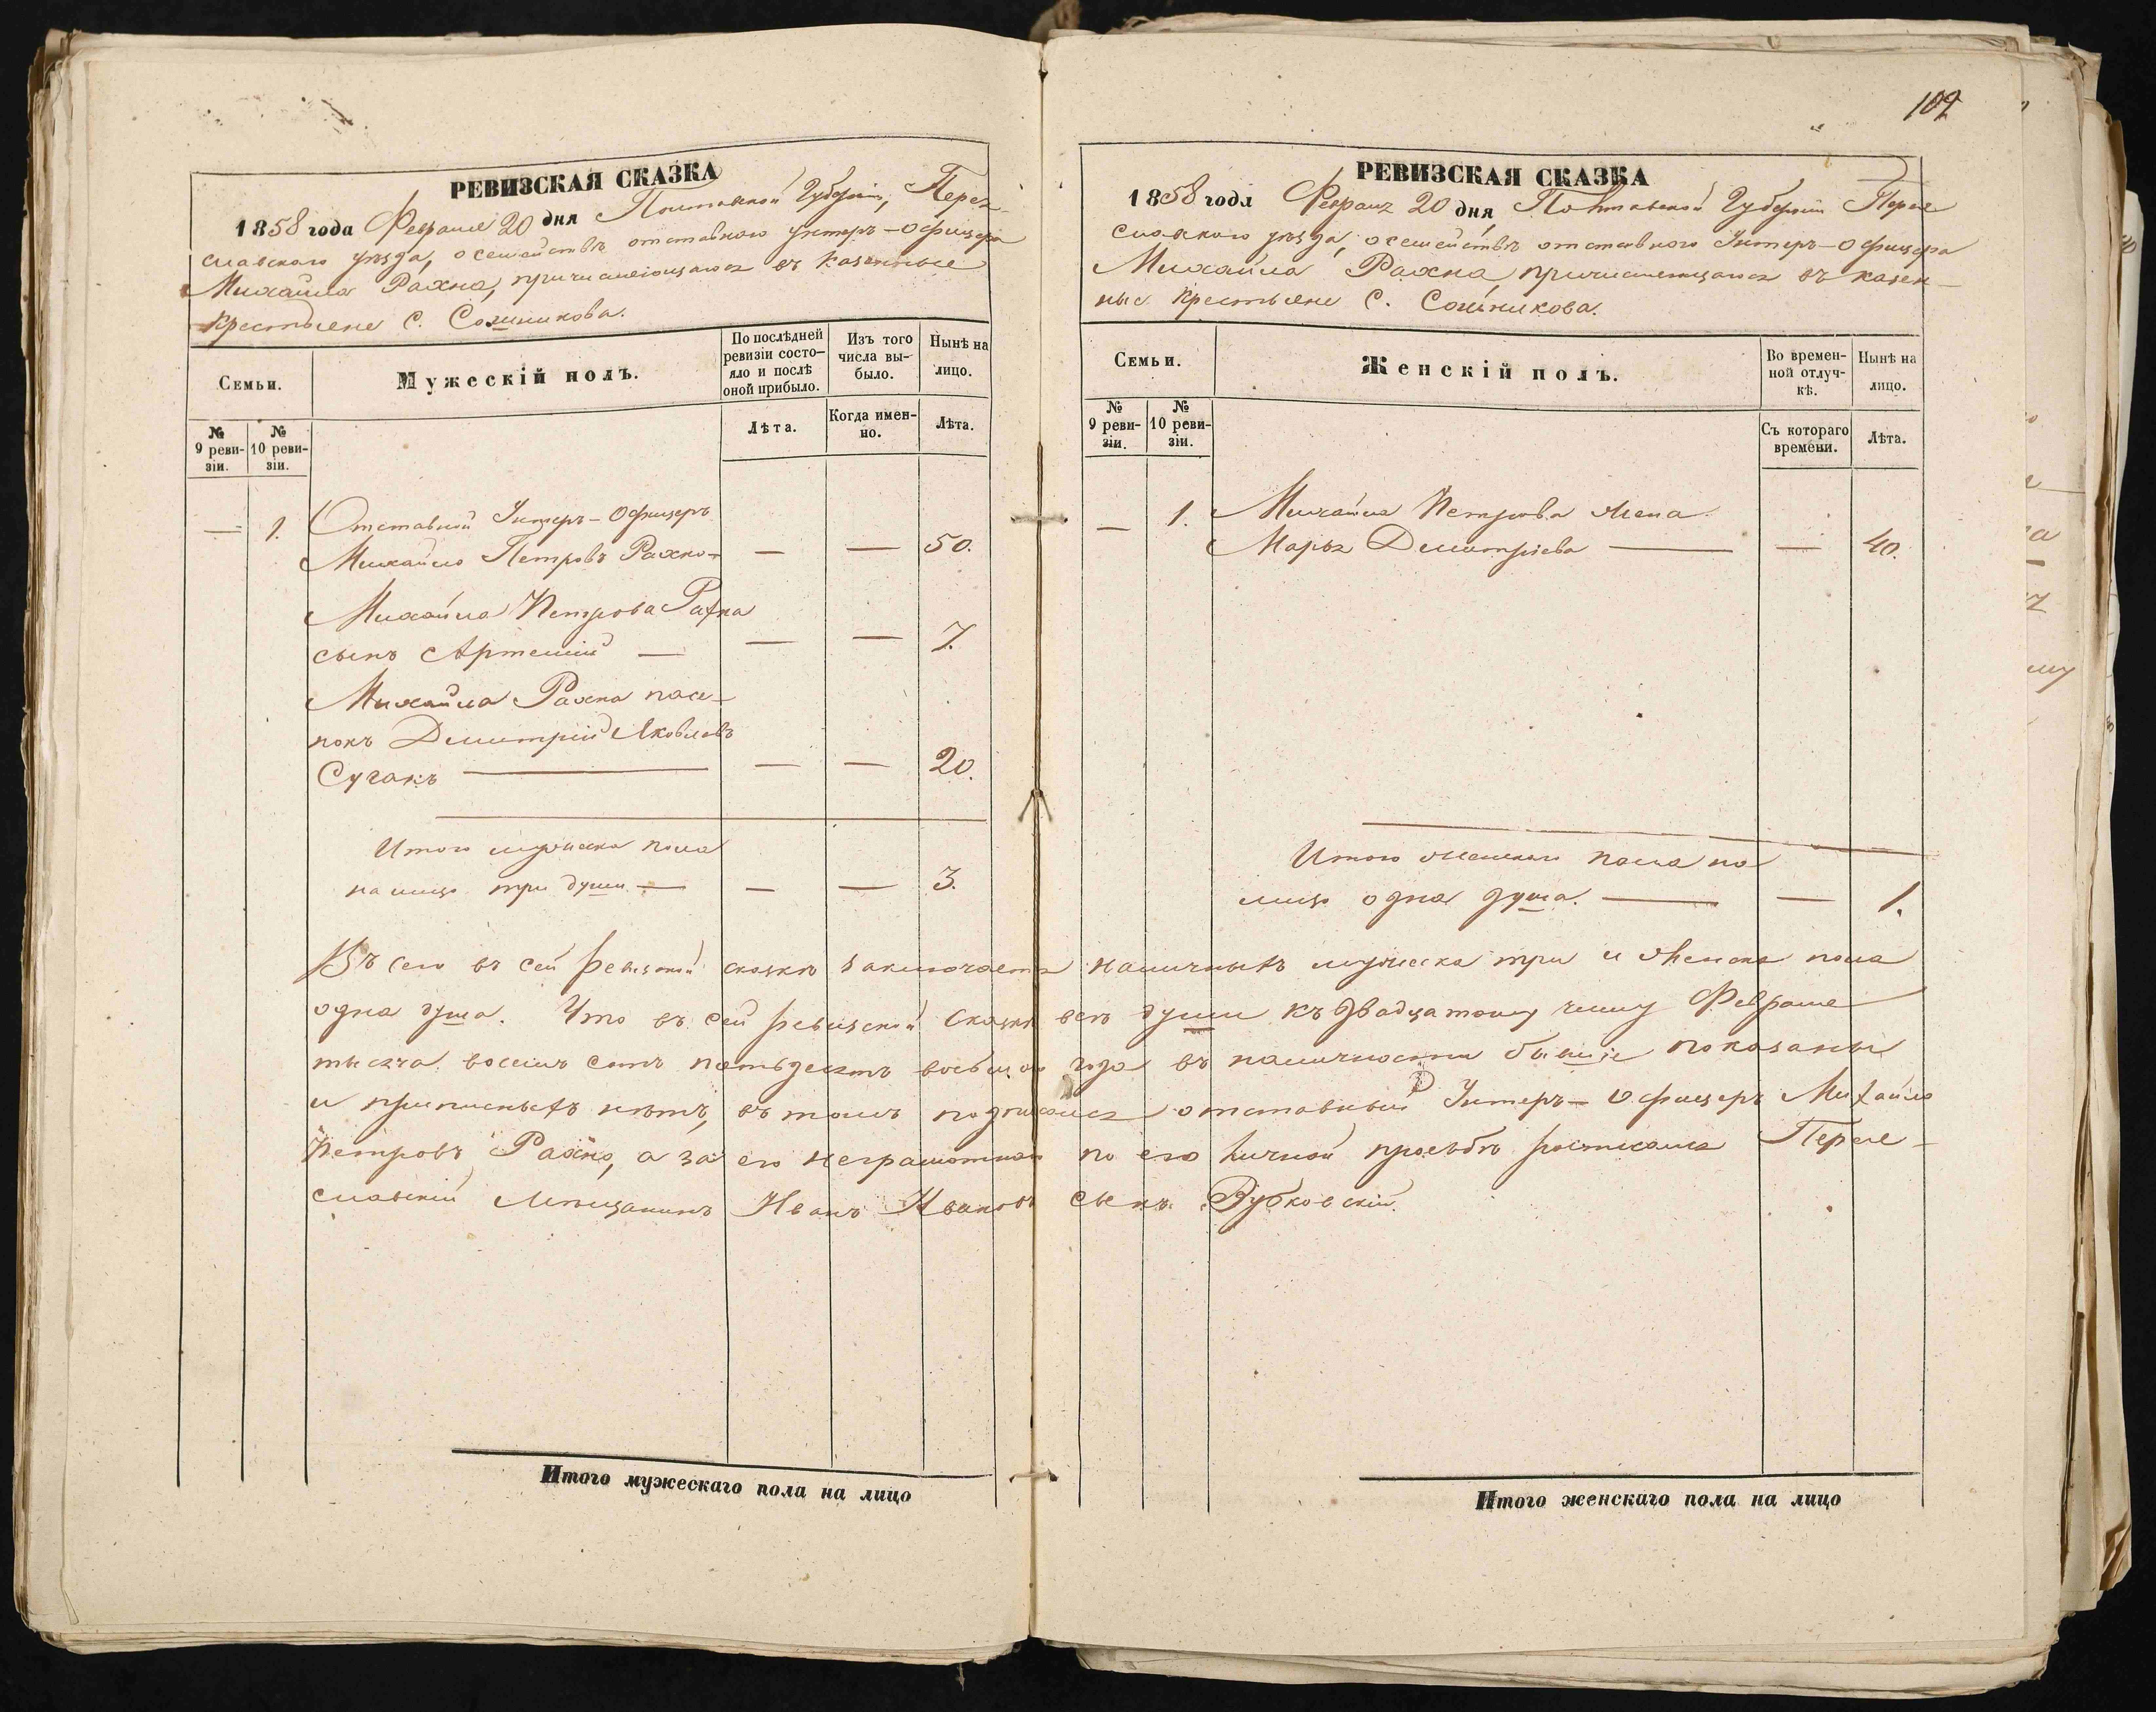 109
РЕВИЗСКАЯ СКАЗКА
1858 года Февраля 20 дня Полтавской Губерніи, Перея-
славского уѣзда, о семействѣ отставного унтеръ-офицера
Михайла Рахна, причисляющагося въ казенные
крестьяне с. Сошникова.
Семьи.
Мужескій полъ.
По послѣдней ревизіи состо-
яло и послѣ оной прибыло.
Изъ того числа вы-
было.
Нынѣ на лицо.
№ 9 реви-
зіи.
№ 10 реви-
зіи.
Лѣта.
Когда имен-
но.
Лѣта.
— 1. Отставной Унтеръ-Офицеръ
Михайло Петровъ Рахно — — — 50.
Михайла Петрова Рахна
сынъ Артемий — — — 7.
Михайла Рахна пасы-
нокъ Димитрій Яковлевъ
Сугакъ — — — 20.
Итого мужеска пола
на лицо три души — — — 3.
РЕВИЗСКАЯ СКАЗКА
1858 года Февраля 20 дня, Полтавской Губерніи Перея
славского уѣзда, о семействѣ отставного Унтеръ-Офицера
Михайла Рахна, причисляющагося въ казен-
ные крестьяне с. Сошникова.
Семьи.
Женскій полъ.
Во времен-
ной отлуч-
кѣ.
Нынѣ на лицо.
№ 9 реви-
зіи.
№ 10 реви-
зіи.
Съ котораго времени.
Лѣта.
— 1. Михайла Петрова жена
Марья Димитріева — — 40.
Итого женскаго пола на
лицо одна душа. — — 1.
Всего въ сей ревизской сказкѣ заключается наличныхъ мужеска три и женска пола
одна душа. Что въ сей ревизской сказкѣ всѣ души къ двадцатому числу Февраля
тысяча восемь сотъ пятьдесятъ восьмого года въ наличности бывшіе показаны
и приписныхъ нѣтъ, въ томъ подписался отставный Унтеръ-Офицеръ Михайло
Петровъ Рахно, а за его неграмотнаго по его личной просьбѣ росписался Перея-
славскій Мѣщанинъ Иванъ Ивановъ сынъ Зубковскій.
Итого мужескаго пола на лицо
Итого женскаго пола на лицо